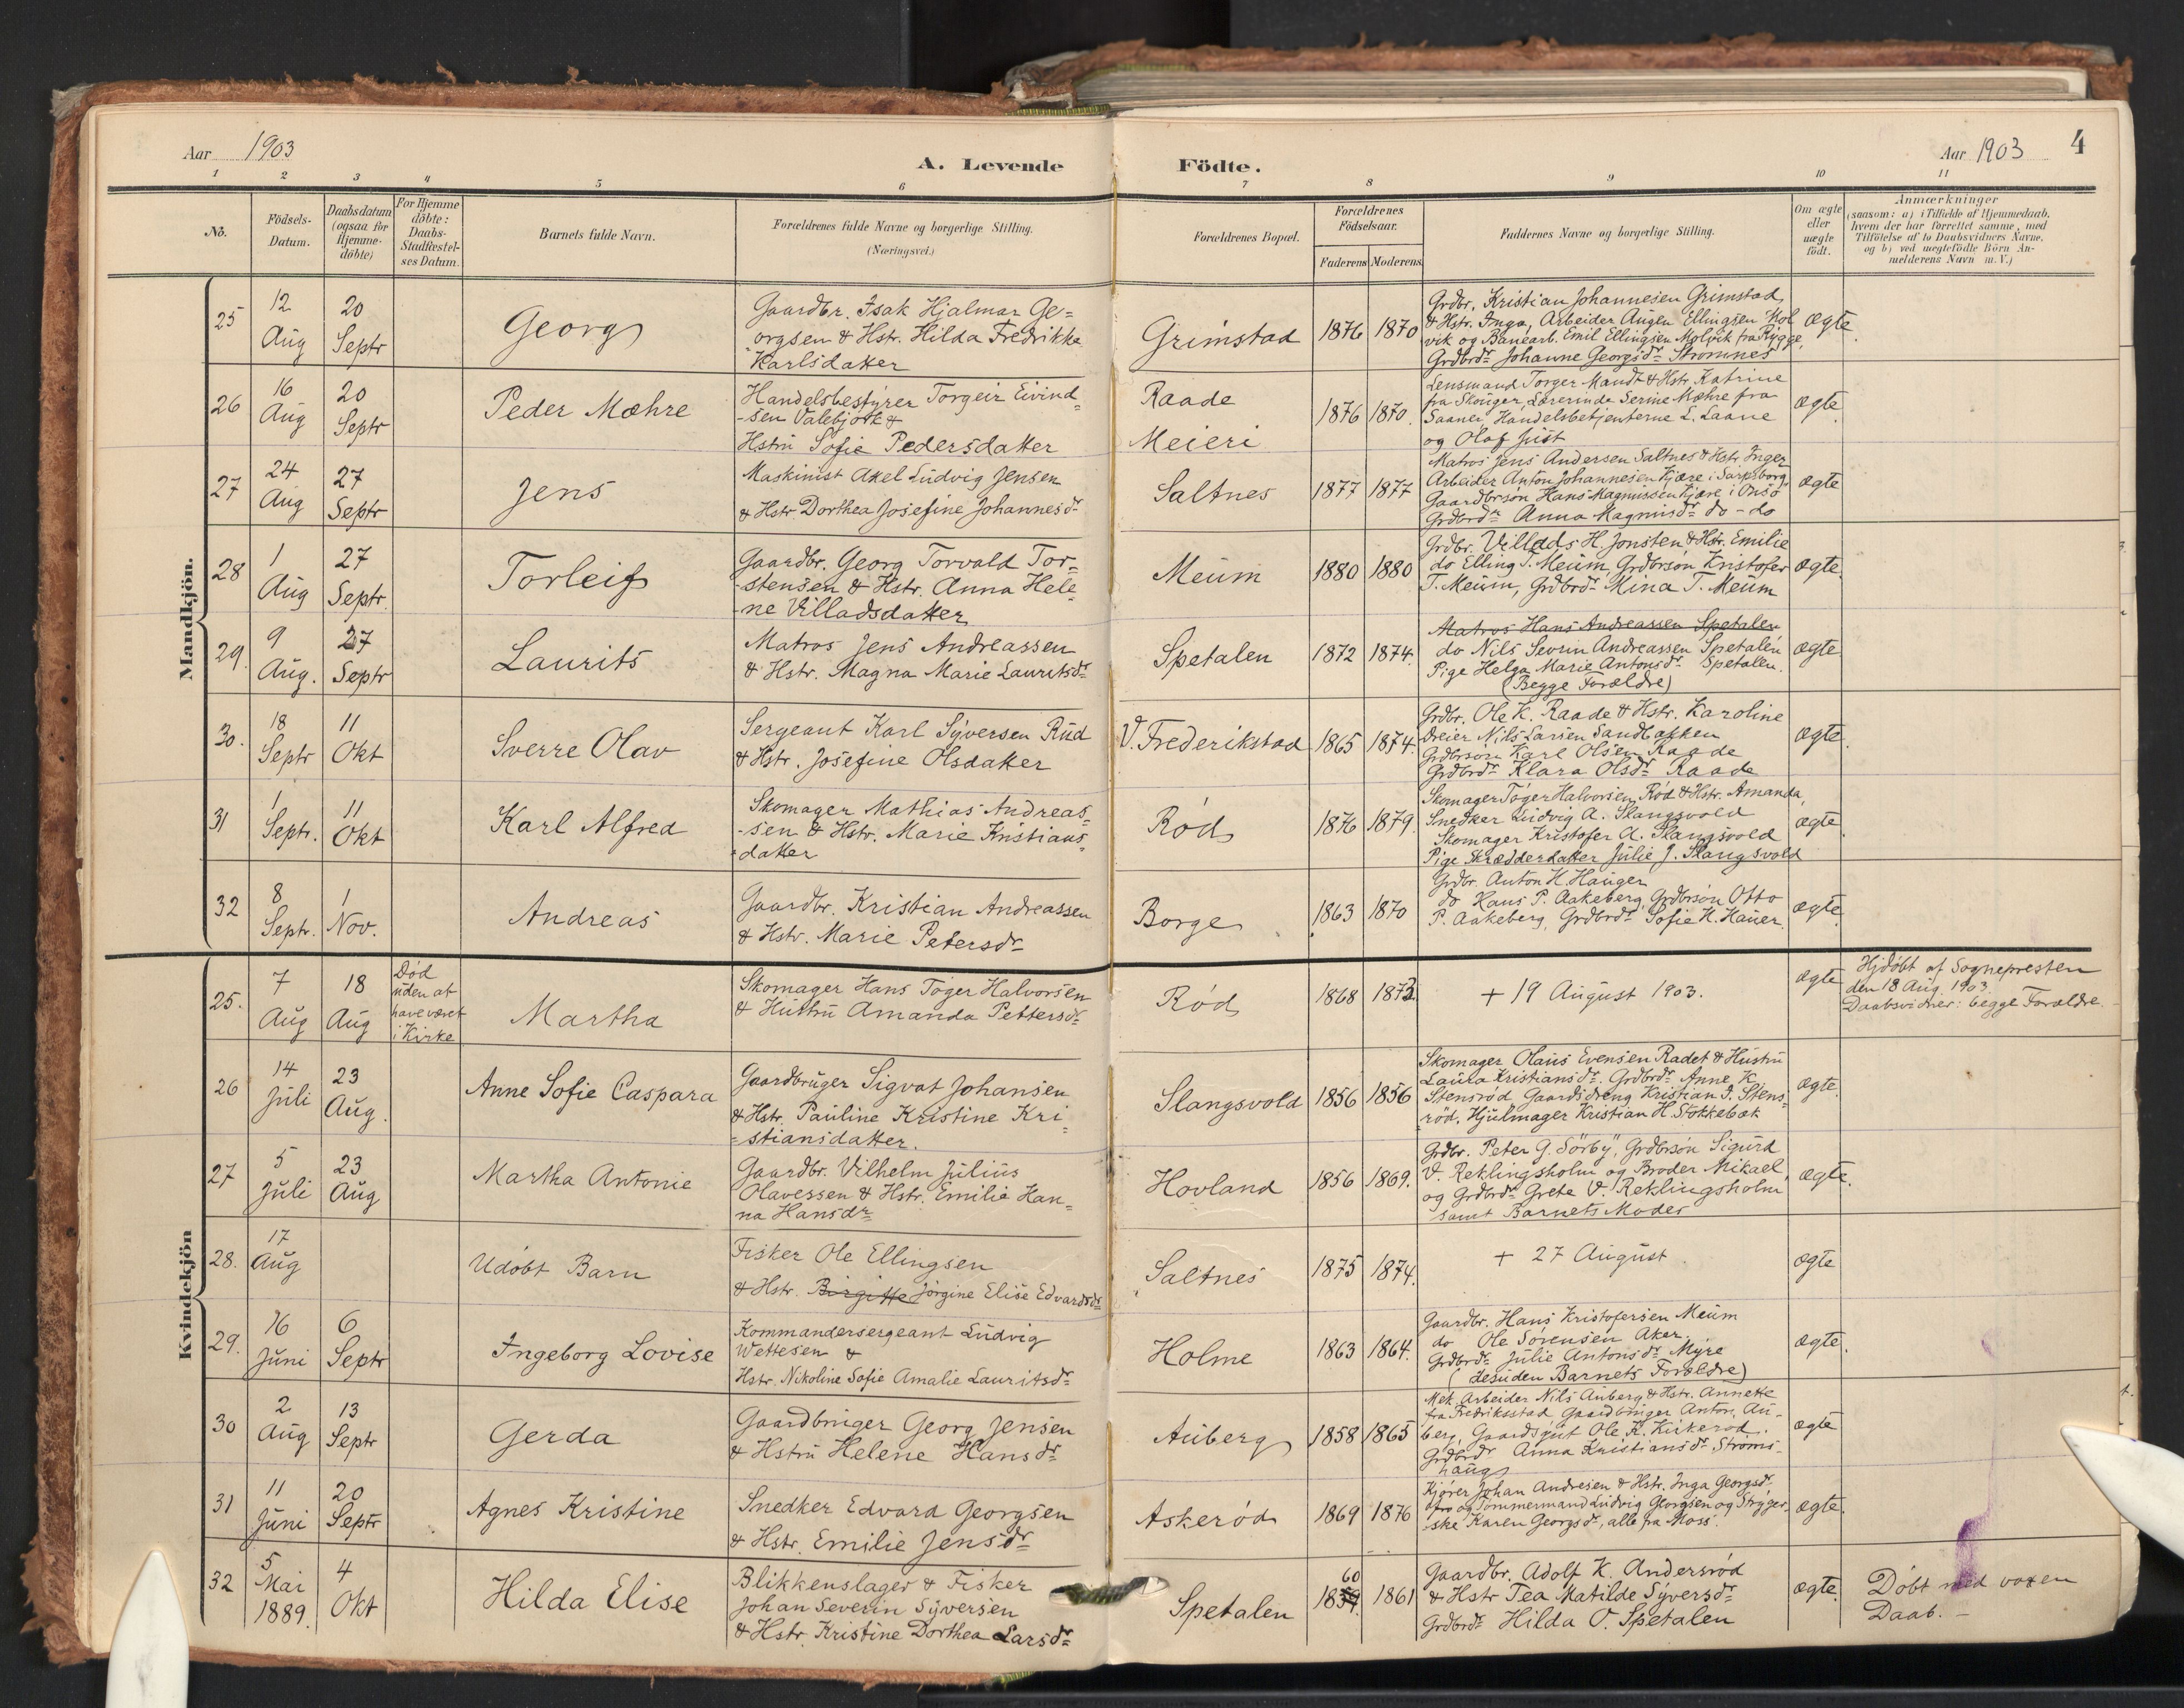 Aar 1903
A. Levende Födte.
Aar 1903
4
1 2 3 4 5 6 7 8 9 10 11
No.
Födsels-Datum.
Daabsdatum (ogsaa for Hjemme-döbte)
For Hjemme döbte: Daabs-Stadfæstel-ses Datum.
Barnets fulde Navn.
Forældrenes fulde Navne og borgerlige Stilling. (Næringsvei.)
Forældrenes Bopæl.
Forældrenes Födselsaar.
Faderens Moderens
Faddernes Navne og borgerlige Stilling.
Om ægte eller uægte födt.
Anmærkninger
(saasom: a) i Tilfælde af Hjemmedaab,
hvem der har forrettet samme, med
Tilföielse af to Daabsvidners Navne,
og b) ved uægtefödte Börn An-
melderens Navn m.V.)
Mandkjön.
25
12 Aug
20 Septr
Georg
Gaardbr. Isak Hjalmar Ge=
orgsen & Hstr. Hilda Fredrikke
Karlsdatter
Grimstad
1876 1870
Grdbr. Kristian Johannesen Grimstad
& Hstr. Inga, Arbeider Augen Ellingsen Mol
vik og Banearb. Emil Ellingsen Molvik fra Rygge,
Grdbrdr Johanne Georgsdr Strømnes
ægte
26
16 Aug
20 Septr
Peder Mæhre
Handelsbestyrer Torgeir Eivind=
-sen Valebjørk &
Hstru Sofie Pedersdatter
Raade
Meieri
1876 1870.
Lensmand Torger Mandt & Hstr Katrine
fra Skouger, Lærerinde Serine Mæhre fra
Saaner, Handelsbetjenterne L. Laane
og Olaf Just
ægte
27
24 Aug
27 Septr
Jens
Maskinist Axel Ludvig Jensen
& Hstr Dorthea Josefine Johannesdr
Saltnes
1877 1877
Matros Jens Andersen Saltnes & Hstr Inger
Arbeider Anton Johannesen Kjære i Sarpsborg
Gaardbrsøn Hans Magnussen Kjære i Onsø
Grdbrdr Anna Magnusdr do - do
ægte
28
1 Aug
27 Septr.
Torleif
Gaardbr. Georg Torvald Tor=
-stensen & Hstr. Anna Hele=
-ne Villadsdatter
Meum
1880 1880
Grdbr. Villads H. Jonsten & Hstr. Emilie
do Elling T. Meum, Grdbrsøn Kristofer
T. Meum, Grdbrdr Mina T. Meum
ægte.
29.
9 Aug.
27 Septr
Laurits
Matros Jens Andreassen
& Hstr. Magna Marie Lauritsdr
Spetalen
1872 1874.
Matros Hans Andreassen Spetalen
do Nils Severin Andreassen Spetalen
Pige Helga Marie Antonsdr Spetalen.
(Begge Forældre)
ægte
30.
18 Septr
11 Okt
Sverre Olav
Sergeant Karl Syversen Rud
& Hstr. Josefine Olsdatter
V. Frederikstad
1865 1874.
Grdbr. Ole K. Raade & Hstr. Karoline
Dreier Nils Larsen Sandbakken
Grdbrsøn Karl Olsen Raade
Grdbrdr Klara Olsdr Raade
ægte.
31
1 Septr.
11 Okt
Karl Alfred
Skomager Mathias Andreas=
-sen & Hstr. Marie Kristians=
-datter
Rød
1876 1879.
Skomager Tøger Halvorsen Rød & Hstr. Amanda,
Snedker Ludvig A. Slangsvold
Skomager Kristofer A. Slangsvold
Pige Skrædderdatter Julie J. Slangsvold
ægte.
32
8 Septr.
1 Nov.
Andreas
Gaardbr. Kristian Andreassen
& Hstr. Marie Petersdr
Borge
1863 1870
Grdbr. Anton H. Hauger
do Hans P. Aakeberg, Grdbrsøn Otto
P. Aakeberg, Grdbrdr Sofie H. Hauer.
ægte.
Kvindekjön
25.
7 Aug
18 Aug
Død
uden at
have været
i Kirke
Martha
Skomager Hans Tøger Halvorsen
& Hustru Amanda Pettersdr
Rød
1868 1873.
+ 19 August 1903.
ægte
Hjdøbt af Sognepresten
den 18 Aug. 1903.
Daabsvidner: begge Forældre.
26
14 Juli
23 Aug.
Anne Sofie Caspara
Gaardbruger Sigvat Johansen
& Hstr. Pauline Kristine Kri=
=stiansdatter.
Slangsvold
1856 1856
Skomager Olaus Evensen Radet & Hustru
Laura Kristiansdr. Grdbrdr Anne K.
Stensrød Gaardsdreng Kristian I. Stens=
rød. Hjulmager Kristian H. Stokkebæk
ægte.
27
5 Juli
23 Aug
Martha Antonie
Gaardbr. Vilhelm Julius
Olavessen & Hstr. Emilie Han=
na Hansdr
Hovland
1856 1869.
Grdbr. Peter G. Sörby, Grdbrsøn Sigurd
V. Reklingsholm og Broder Mikael
og Grdbrdr Grete V. Reklingsholm
samt Barnets Moder
ægte.
28.
17 Aug
Udøbt Barn
Fisker Ole Ellingsen
& Hstr. Birgitte Jørgine Elise Edvardsdr
Saltnes
1875 1874.
+ 27 August
ægte
29.
16 Juni
6 Septr
Ingeborg Lovise
Kommandersergeant Ludvig
Wettesen &
Hstr. Nikoline Sofie Amalie Lauritsdr
Holme
1863 1864.
Gaardbr. Hans Kristofersen Meum
do Ole Sørensen Aker
Grdbrdr Julie Antonsdr Myre
(desuden Barnets Forældre)
ægte.
30
2 Aug
13 Septr
Gerda
Gaardbruger Georg Jensen
& Hstru Helene Hansdr
Auberg
1858 1865
Mek. Arbeider Nils Auberg & Hstr. Annette
fra Fredriksstad, Gaardbruger Anton Au-
berg, Gaardsgut Ole K. Kirkerød.
Grdbrdr Anna Kristiansdr Strøms-
haug
ægte
31
11 Juni
20 Septr
Agnes Kristine
Snedker Edvard Georgsen
& Hstr. Emilie Jensdr
Askerød
1869 1876
Kjører Johan Andresen & Hstr. Inga Georgsdr,
og Tømmermand Ludvig Georgsen og Stryger-
ske Karen Georgsdr, alle fra Moss.
ægte.
32
5 Mai 1889.
4 Okt
Hilda Elise
Blikkenslager & Fisker
Johan Severin Syversen
& Hstr. Kristine Dorthea Larsdr
Spetalen
60
1859. 1861
Gaardbr. Adolf K. Andersrød
& Hstr Tea Matilde Syversdr
Grdbrdr Hilda O. Spetalen
ægte.
Døbt med voxen
Daab. -